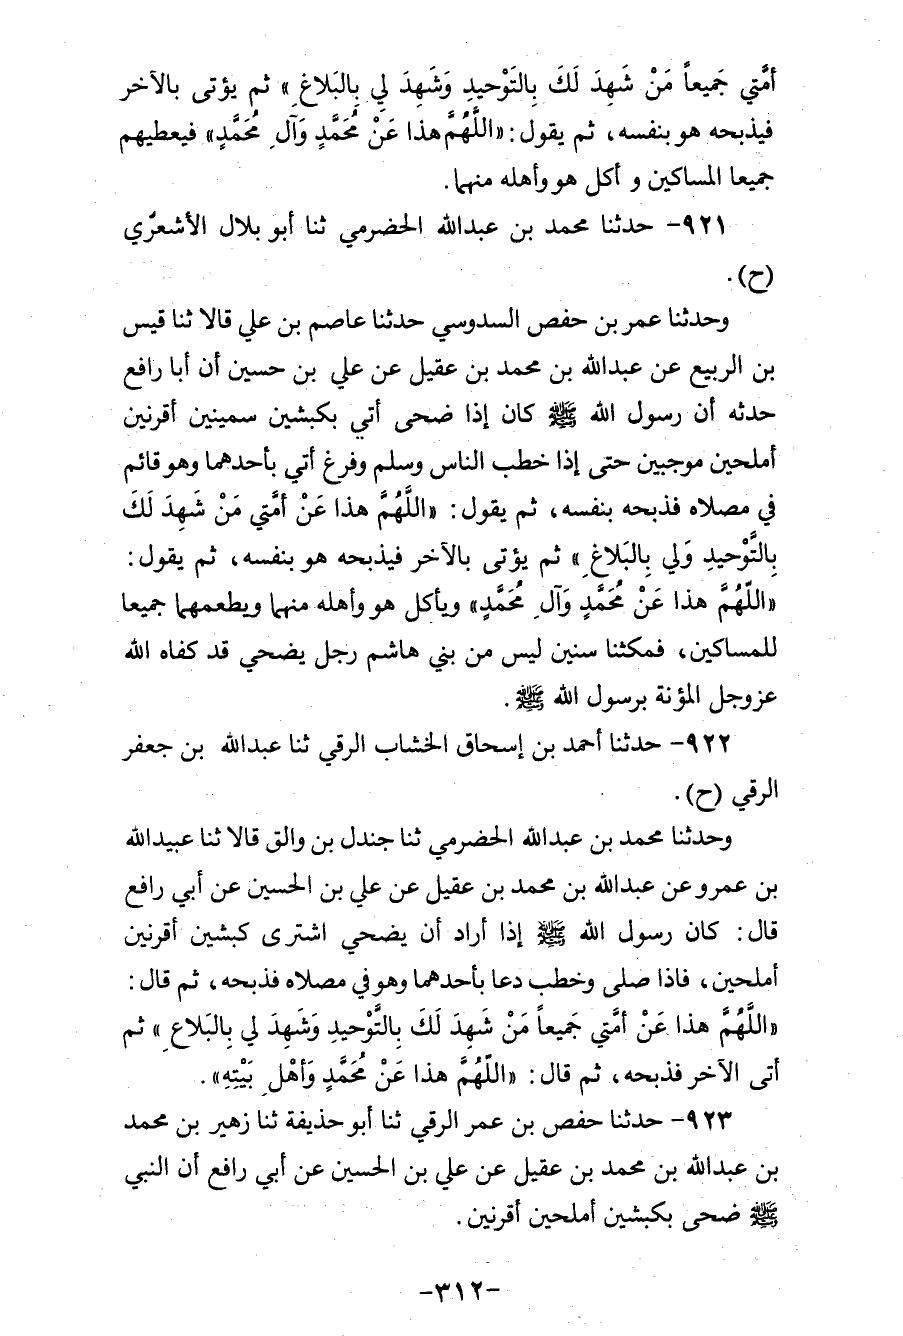 أُمَّتي جَميعاً مَنْ شَهِدَ لَكَ بِالتَوْحيدِ وَشَهِدَ لِي بِالبَلاغِ» ثم يؤتى بالآخر
فيذبحه هو بنفسه، ثم يقول: «اللَّهُمَّ هذا عَنْ مُحَمَّدٍ وَآلِ مُحَمَّدٍ» فيعطيهم
جميعا المساكين و أكل هو وأهله منهما.
٩٢١- حدثنا محمد بن عبدالله الحضرمي ثنا أبو بلال الأشعرّي
(ح).
وحدثنا عمر بن حفص السدوسي حدثنا عاصم بن علي قالا ثنا قيس
بن الربيع عن عبدالله بن محمد بن عقيل عن علي بن حسين أن أبا رافع
حدثه أن رسول الله ﷺ كان إذا ضحى أتي بكبشين سمينين أقرنين
أملحين موجبين حتى إذا خطب الناس وسلم وفرغ أتي بأحدهما وهو قائم
في مصلاه فذبحه بنفسه، ثم يقول: «اللَّهُمَّ هذا عَنْ أُمَّتي مَنْ شَهِدَ لَكَ
بِالتَّوْحيدِ وَلي بِالبَلاغِ» ثم يؤتى بالآخر فيذبحه هو بنفسه، ثم يقول:
«اللّهُمَّ هذا عَنْ مُحَمَّدٍ وَآلِ مُحَمَّدٍ» ويأكل هو وأهله منهما ويطعمهما جميعا
للمساكين، فمكثنا سنين ليس من بني هاشم رجل يضحي قد كفاه الله
عزوجل المؤنة برسول الله ﷺ.
٩٢٢- حدثنا أحمد بن إسحاق الخشاب الرقي ثنا عبدالله بن جعفر
الرقي (ح).
وحدثنا محمد بن عبدالله الحضرمي ثنا جندل بن والق قالا ثنا عبيدالله
بن عمرو عن عبدالله بن محمد بن عقيل عن علي بن الحسين عن أبي رافع
قال: كان رسول الله ﷺ إذا أراد أن يضحي اشترى كبشين أقرنين
أملحين، فاذا صلى وخطب دعا بأحدهما وهو في مصلاه فذبحه، ثم قال:
«اللَّهُمَّ هذا عَنْ أُمَّتي جَميعاً مَنْ شَهِدَ لَكَ بِالتَّوْحيدِ وَشَهِدَ لي بِالبَلاعِ» ثم
أتى الآخر فذبحه، ثم قال: «اللّهُمَّ هذا عَنْ مُحَمَّدٍ وَأهْلِ بَيْتِهِ».
٩٢٣- حدثنا حفص بن عمر الرقي ثنا أبو حذيفة ثنا زهير بن محمد
بن عبدالله بن محمد بن عقيل عن علي بن الحسين عن أبي رافع أن النبي
ﷺ ضحى بكبشين أملحين أقرنين.
-٣١٢-